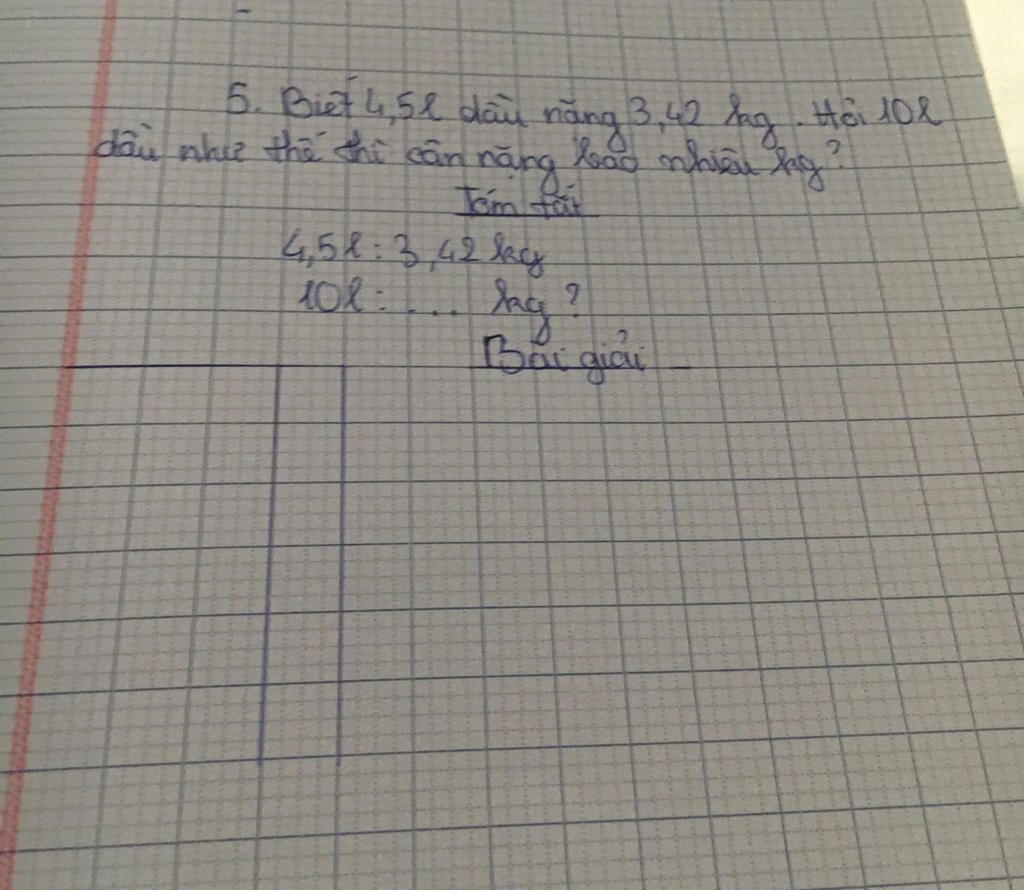 5. Biết 4,5l dầu nặng 3,42 kg. Hỏi 10l
dầu như thế thì cân nặng bao nhiêu kg?
Tóm tắt
4,5l : 3,42 kg
10l : .... kg?
Bài giải